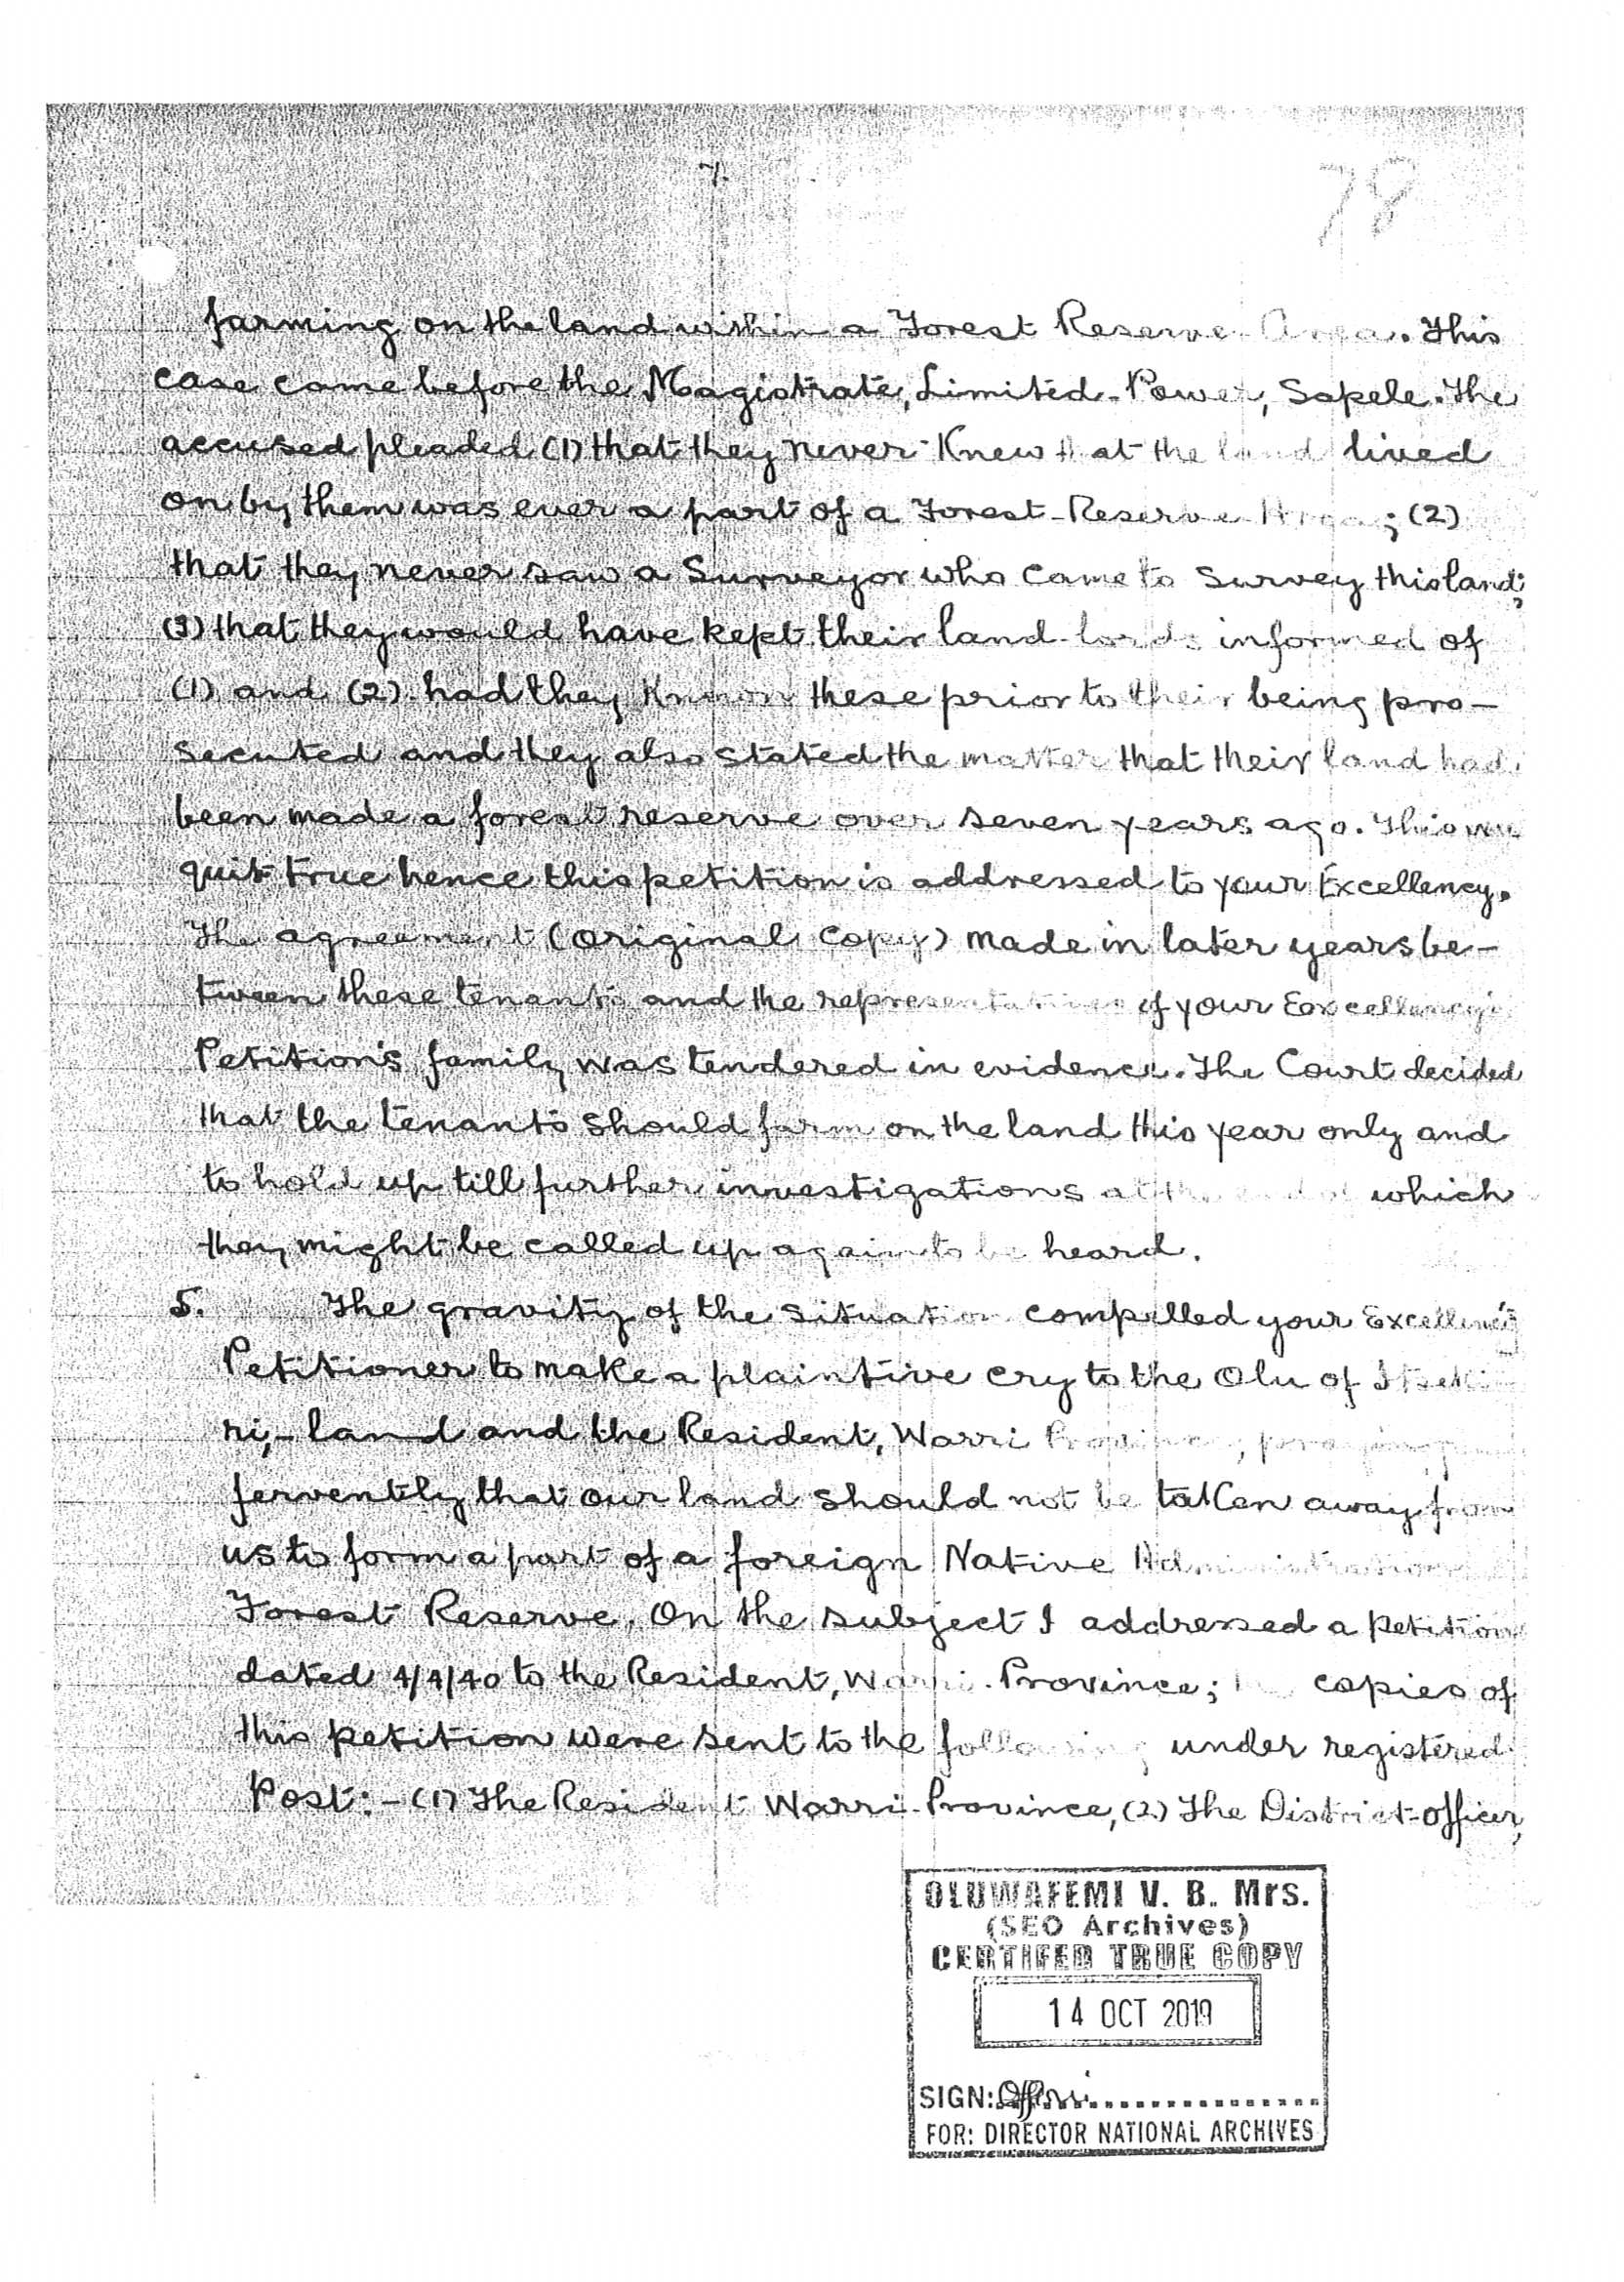 7.
78
farming on the land within a Forest Reserve Area. This
case came before the Magistrate, Limited-Power, Sapele. The
accused pleaded (1) that they never Knew that the land lived
on by them was ever a part of a Forest-Reserve Area; (2)
that they never saw a Surveyor who came to survey this land;
(3) that they would have kept their land-lords informed of
(1) and (2) had they Known these prior to their being pro-
secuted and they also stated the matter that their land had
been made a forest reserve over seven years ago. This
quit true hence this petition is addressed to your Excellency.
The agreement (Original Copy) made in later years be-
tween these tenants and the representatives of your Eoxcellency's
Petition's family was tendered in evidence. The Court decided
that the tenants should farm on the land this year only and
to hold up till further investigations at the end of which
they might be called up again to be heard.
5. The gravity of the situation compelled your Excellency's
Petitioner to make a plaintive cry to the Olu of Itseki-
ri,-land and the Resident, Warri Province, praying
ferventily that our land should not be taken away from
us to form a part of a foreign Native Administration
Forest Reserve. On the subject I addressed a petition
dated 4/4/40 to the Resident, Warri-Province; copies of
this petition were sent to the following under registered
Post:- (1) The Resident Warri-Province, (2) The District-Officer,
OLUWAFEMI V. B. Mrs.
(SEO Archives)
CERTIFED TRUE COPY
14 OCT 2019
SIGN:
FOR: DIRECTOR NATIONAL ARCHIVES